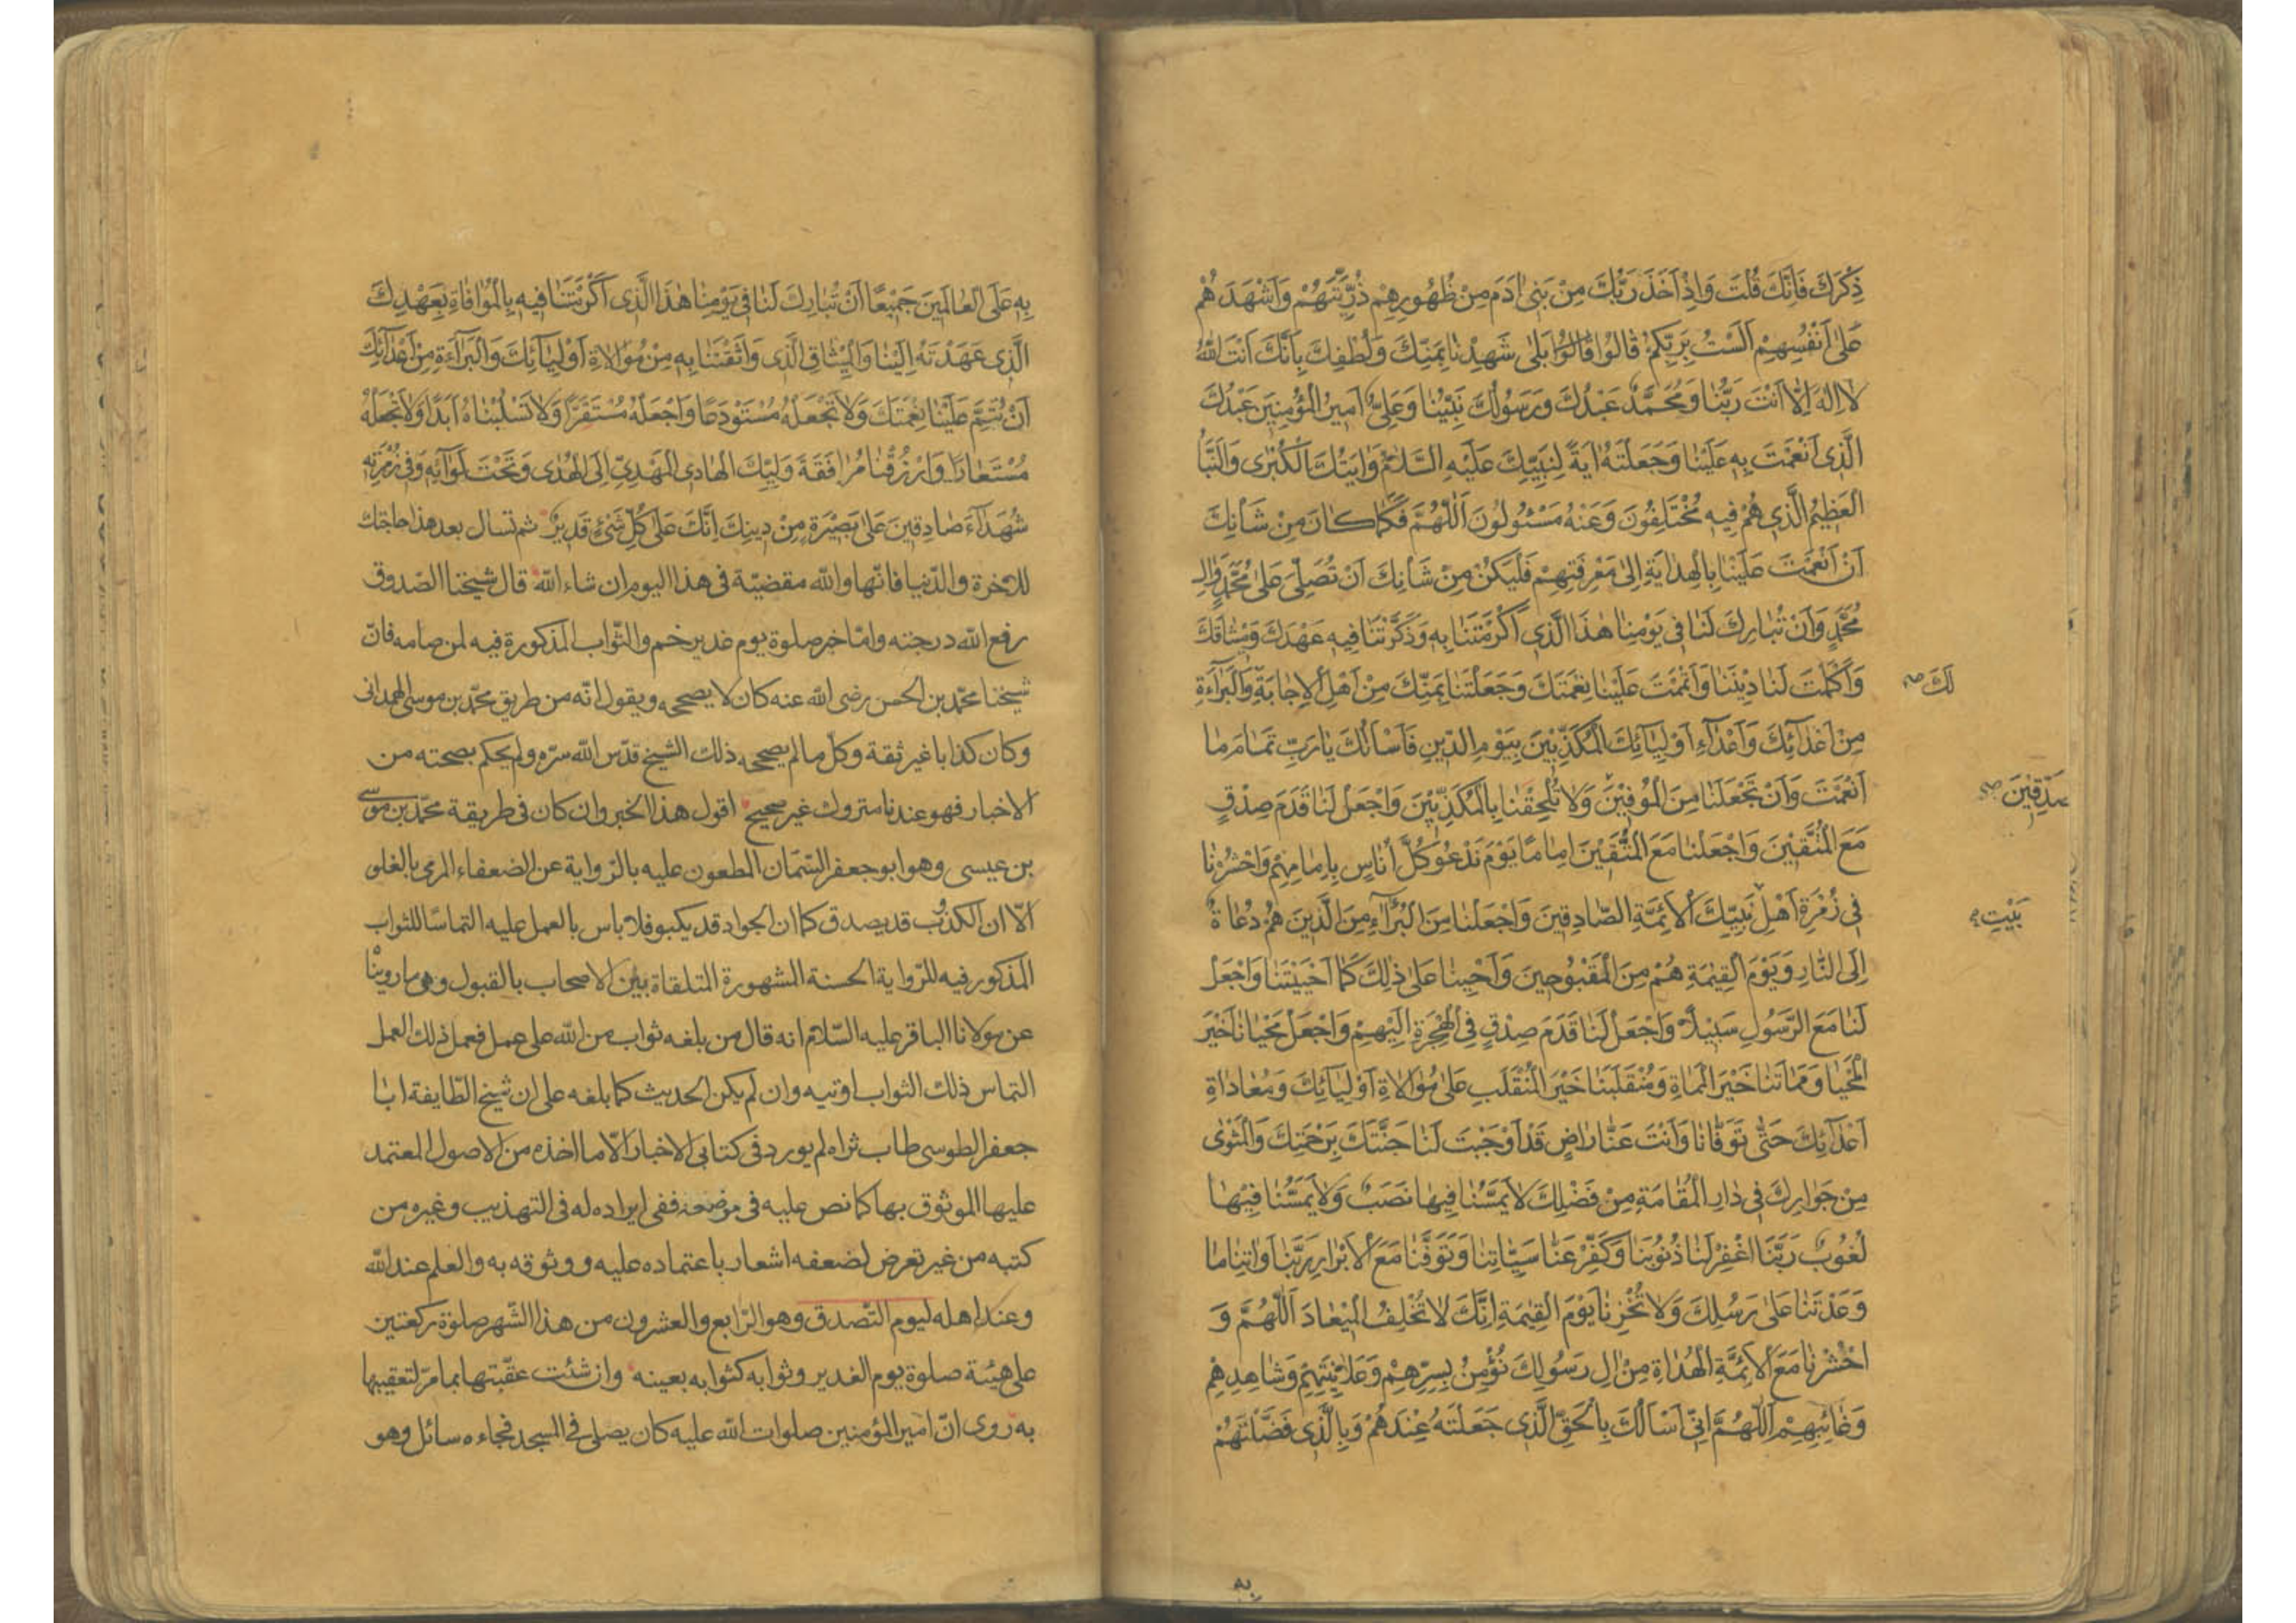 ذِكْرَكَ فَاِنَّكَ قُلْتَ وَاِذْ اَخَذَ رَبُّكَ مِنْ بَنِی اٰدَمَ مِنْ ظُهُورِهِمْ ذُرِّيَّتَهُمْ وَاَشْهَدَهُمْ
عَلٰی اَنْفُسِهِمْ اَلَسْتُ بِرَبِّكُمْ قٰالُوا قٰالُوا بَلٰی شَهِدْنٰا بِمَنِّكَ وَلُطْفِكَ بِاَنَّكَ اَنْتَ اللّٰهُ
لٰا اِلٰهَ اِلّٰا اَنْتَ رَبُّنٰا وَمُحَمَّدٌ عَبْدُكَ وَرَسُولُكَ نَبِيُّنٰا وَعَلِیٌّ اَمِيرُ الْمُؤْمِنِينَ عَبْدُكَ
الَّذِی اَنْعَمْتَ بِهِ عَلَيْنٰا وَجَعَلْتَهُ اٰيَةً لِنَبِيِّكَ عَلَيْهِ السَّلٰامُ وَاٰيَتَكَ الْكُبْرٰی وَالنَّبَأُ
الْعَظِيمُ الَّذِی هُمْ فِيهِ مُخْتَلِفُونَ وَعَنْهُ مَسْئُولُونَ اَللّٰهُمَّ فَكَمٰا كٰانَ مِنْ شَأْنِكَ
اَنْ اَنْعَمْتَ عَلَيْنٰا بِالْهِدٰايَةِ اِلٰی مَعْرِفَتِهِمْ فَلْيَكُنْ مِنْ شَأْنِكَ اَنْ تُصَلِّیَ عَلٰی مُحَمَّدٍ وَاٰلِ
مُحَمَّدٍ وَاَنْ تُبٰارِكَ لَنٰا فِی يَوْمِنٰا هٰذَا الَّذِی اَكْرَمْتَنٰا بِهِ وَذَكَّرْتَنٰا فِيهِ عَهْدَكَ وَمِيثٰاقَكَ
وَاَكْمَلْتَ لَنٰا دِينَنٰا وَاَتْمَمْتَ عَلَيْنٰا نِعْمَتَكَ وَجَعَلْتَنٰا بِمَنِّكَ مِنْ اَهْلِ الْاِجٰابَةِ وَالْبَرٰآءَةِ
لَكَ صه
مِنْ اَعْدٰآئِكَ وَاَعْدٰآءِ اَوْلِيٰآئِكَ الْمُكَذِّبِينَ بِيَوْمِ الدِّينِ فَاَسْأَلُكَ يٰا رَبِّ تَمٰامَ مٰا
اَنْعَمْتَ وَاَنْ تَجْعَلَنٰا مِنَ الْمُوفِينَ وَلٰا تُلْحِقْنٰا بِالْمُكَذِّبِينَ وَاجْعَلْ لَنٰا قَدَمَ صِدْقٍ
مَعَ الْمُتَّقِينَ وَاجْعَلْنٰا مَعَ الْمُتَّقِينَ اِمٰامًا يَوْمَ نَدْعُو كُلَّ اُنٰاسٍ بِاِمٰامِهِمْ وَاحْشُرْنٰا
فِی زُمْرَةِ اَهْلِ نَبِيِّكَ الْاَئِمَّةِ الصّٰادِقِينَ وَاجْعَلْنٰا مِنَ الْبُرَآءِ مِنَ الَّذِينَ هُمْ دُعٰاةٌ
بَيْتِ
اِلَی النّٰارِ وَيَوْمَ الْقِيٰمَةِ هُمْ مِنَ الْمَقْبُوحِينَ وَاَحْيِنٰا عَلٰی ذٰلِكَ كَمٰا اَحْيَيْتَنٰا وَاجْعَلْ
لَنٰا مَعَ الرَّسُولِ سَبِيلًا وَاجْعَلْ لَنٰا قَدَمَ صِدْقٍ فِی الْهِجْرَةِ اِلَيْهِمْ وَاجْعَلْ مَحْيٰانٰا خَيْرَ
الْمَحْيٰا وَمَمٰاتَنٰا خَيْرَ الْمَمٰاةِ وَمُنْقَلَبَنٰا خَيْرَ الْمُنْقَلَبِ عَلٰی مُوٰالٰاةِ اَوْلِيٰآئِكَ وَمُعٰادٰاةِ
اَعْدٰآئِكَ حَتّٰی تَوَفّٰانٰا وَاَنْتَ عَنّٰا رٰاضٍ قَدْ اَوْجَبْتَ لَنٰا جَنَّتَكَ بِرَحْمَتِكَ وَالْمَثْوٰی
مِنْ جَوٰارِكَ فِی دٰارِ الْمُقٰامَةِ مِنْ فَضْلِكَ لٰا يَمَسُّنٰا فِيهٰا نَصَبٌ وَلٰا يَمَسُّنٰا فِيهٰا
لُغُوبٌ رَبَّنَا اغْفِرْ لَنٰا ذُنُوبَنٰا وَكَفِّرْ عَنّٰا سَيِّاٰتِنٰا وَتَوَفَّنٰا مَعَ الْاَبْرٰارِ رَبَّنٰا وَاٰتِنٰا مٰا
وَعَدْتَنٰا عَلٰی رُسُلِكَ وَلٰا تُخْزِنٰا يَوْمَ الْقِيٰمَةِ اِنَّكَ لٰا تُخْلِفُ الْمِيعٰادَ اَللّٰهُمَّ وَ
احْشُرْنٰا مَعَ الْاَئِمَّةِ الْهُدٰاةِ مِنْ اٰلِ رَسُولِكَ نُؤْمِنُ بِسِرِّهِمْ وَعَلٰانِيَتِهِمْ وَشٰاهِدِهِمْ
وَغٰائِبِهِمْ اَللّٰهُمَّ اِنِّی اَسْأَلُكَ بِالْحَقِّ الَّذِی جَعَلْتَهُ عِنْدَهُمْ وَبِالَّذِی فَضَّلْتَهُمْ
به
بِهِ عَلَی الْعٰالَمِينَ جَمِيعًا اَنْ تُبٰارِكَ لَنٰا فِی يَوْمِنٰا هٰذَا الَّذِی اَكْرَمْتَنٰا فِيهِ بِالْمُوٰافٰاةِ بِعَهْدِكَ
الَّذِی عَهَدْتَهُ اِلَيْنٰا وَالْمِيثٰاقِ الَّذِی وَاثَقْتَنٰا بِهِ مِنْ مُوٰالٰاةِ اَوْلِيٰآئِكَ وَالْبَرٰآءَةِ مِنْ اَعْدٰآئِكَ
اَنْ تُتِمَّ عَلَيْنٰا نِعْمَتَكَ وَلٰا تَجْعَلْهُ مُسْتَوْدَعًا وَاجْعَلْهُ مُسْتَقَرًّا وَلٰا تَسْلُبْنٰاهُ اَبَدًا وَلٰا تَجْعَلْهُ
مُسْتَعٰارًا وَارْزُقْنٰا مُرٰافَقَةَ وَلِيِّكَ الْهٰادِی الْمَهْدِیِّ اِلَی الْهُدٰی وَتَحْتَ لِوٰآئِهِ وَفِی زُمْرَتِهِ
شُهَدٰآءَ صٰادِقِينَ عَلٰی بَصِيرَةٍ مِنْ دِينِكَ اِنَّكَ عَلٰی كُلِّ شَیْءٍ قَدِيرٌ ثم تسال بعد هذا حاجتك
للاخرة والدّنيا فانّها والله مقضيّة فی هذا اليوم ان شاء الله قال شيخنا الصّدوق
رفع الله درجته وامّا خبر صلوة يوم غدير خم والثّواب المذكورة فيه لمن صامه فانّ
شيخنا محمّد بن الحسن رضی الله عنه كان لا يصححه ويقول انّه من طريق محمّد بن موسی الهمدانی
وكان كذابا غير ثقة وكلّ ما لم يصححه ذلك الشيخ قدّس الله سرّه ولم يحكم بصحته من
الاخبار فهو عندنا متروك غير صحيح اقول هذا الخبر وان كان فی طريقة محمّد بن موسی
بن عيسی وهو ابو جعفر السّمّان المطعون عليه بالرّواية عن الضعفاء المرمی بالغلو
الّا ان الكذوب قد يصدق كما ان الجواد قد يكبو فلا باس بالعمل عليه التماسًا للثواب
المذكور فيه للرّواية الحسنة المشهورة المتلقاة بين الاصحاب بالقبول وهی ما روينا
عن مولانا الباقر عليه السّلام انه قال من بلغه ثواب من الله علی عمل فعمل ذلك العمل
التماس ذلك الثواب اوتيه وان لم يكن الحديث كما بلغه علی ان شيخ الطّايفة ابا
جعفر الطوسی طاب ثراه لم يورد فی كتابی الاخبار الّا ما اخذه من الاصول المعتمد
عليها الموثوق بها كما نص عليه فی ففی ايراده له فی التهذيب وغيره من
كتبه من غير تعرض لضعفه اشعار باعتماده عليه ووثوقه به والعلم عند الله
وعند اهله ليوم التّصدق وهو الرّابع والعشرون من هذا الشّهر صلوة ركعتين
علی هيئة صلوة يوم الغدير وثوابه كثوابه بعينه وان شئت عقّبتها بما مرّ لتعقيبها
به روی انّ امير المؤمنين صلوات الله عليه كان يصلی فی المسجد فجاءه سائل وهو